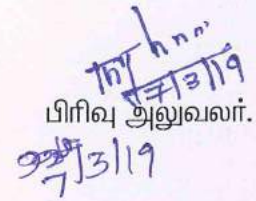 7/3/19
பிரிவு அலுவலர்.
7/3/19